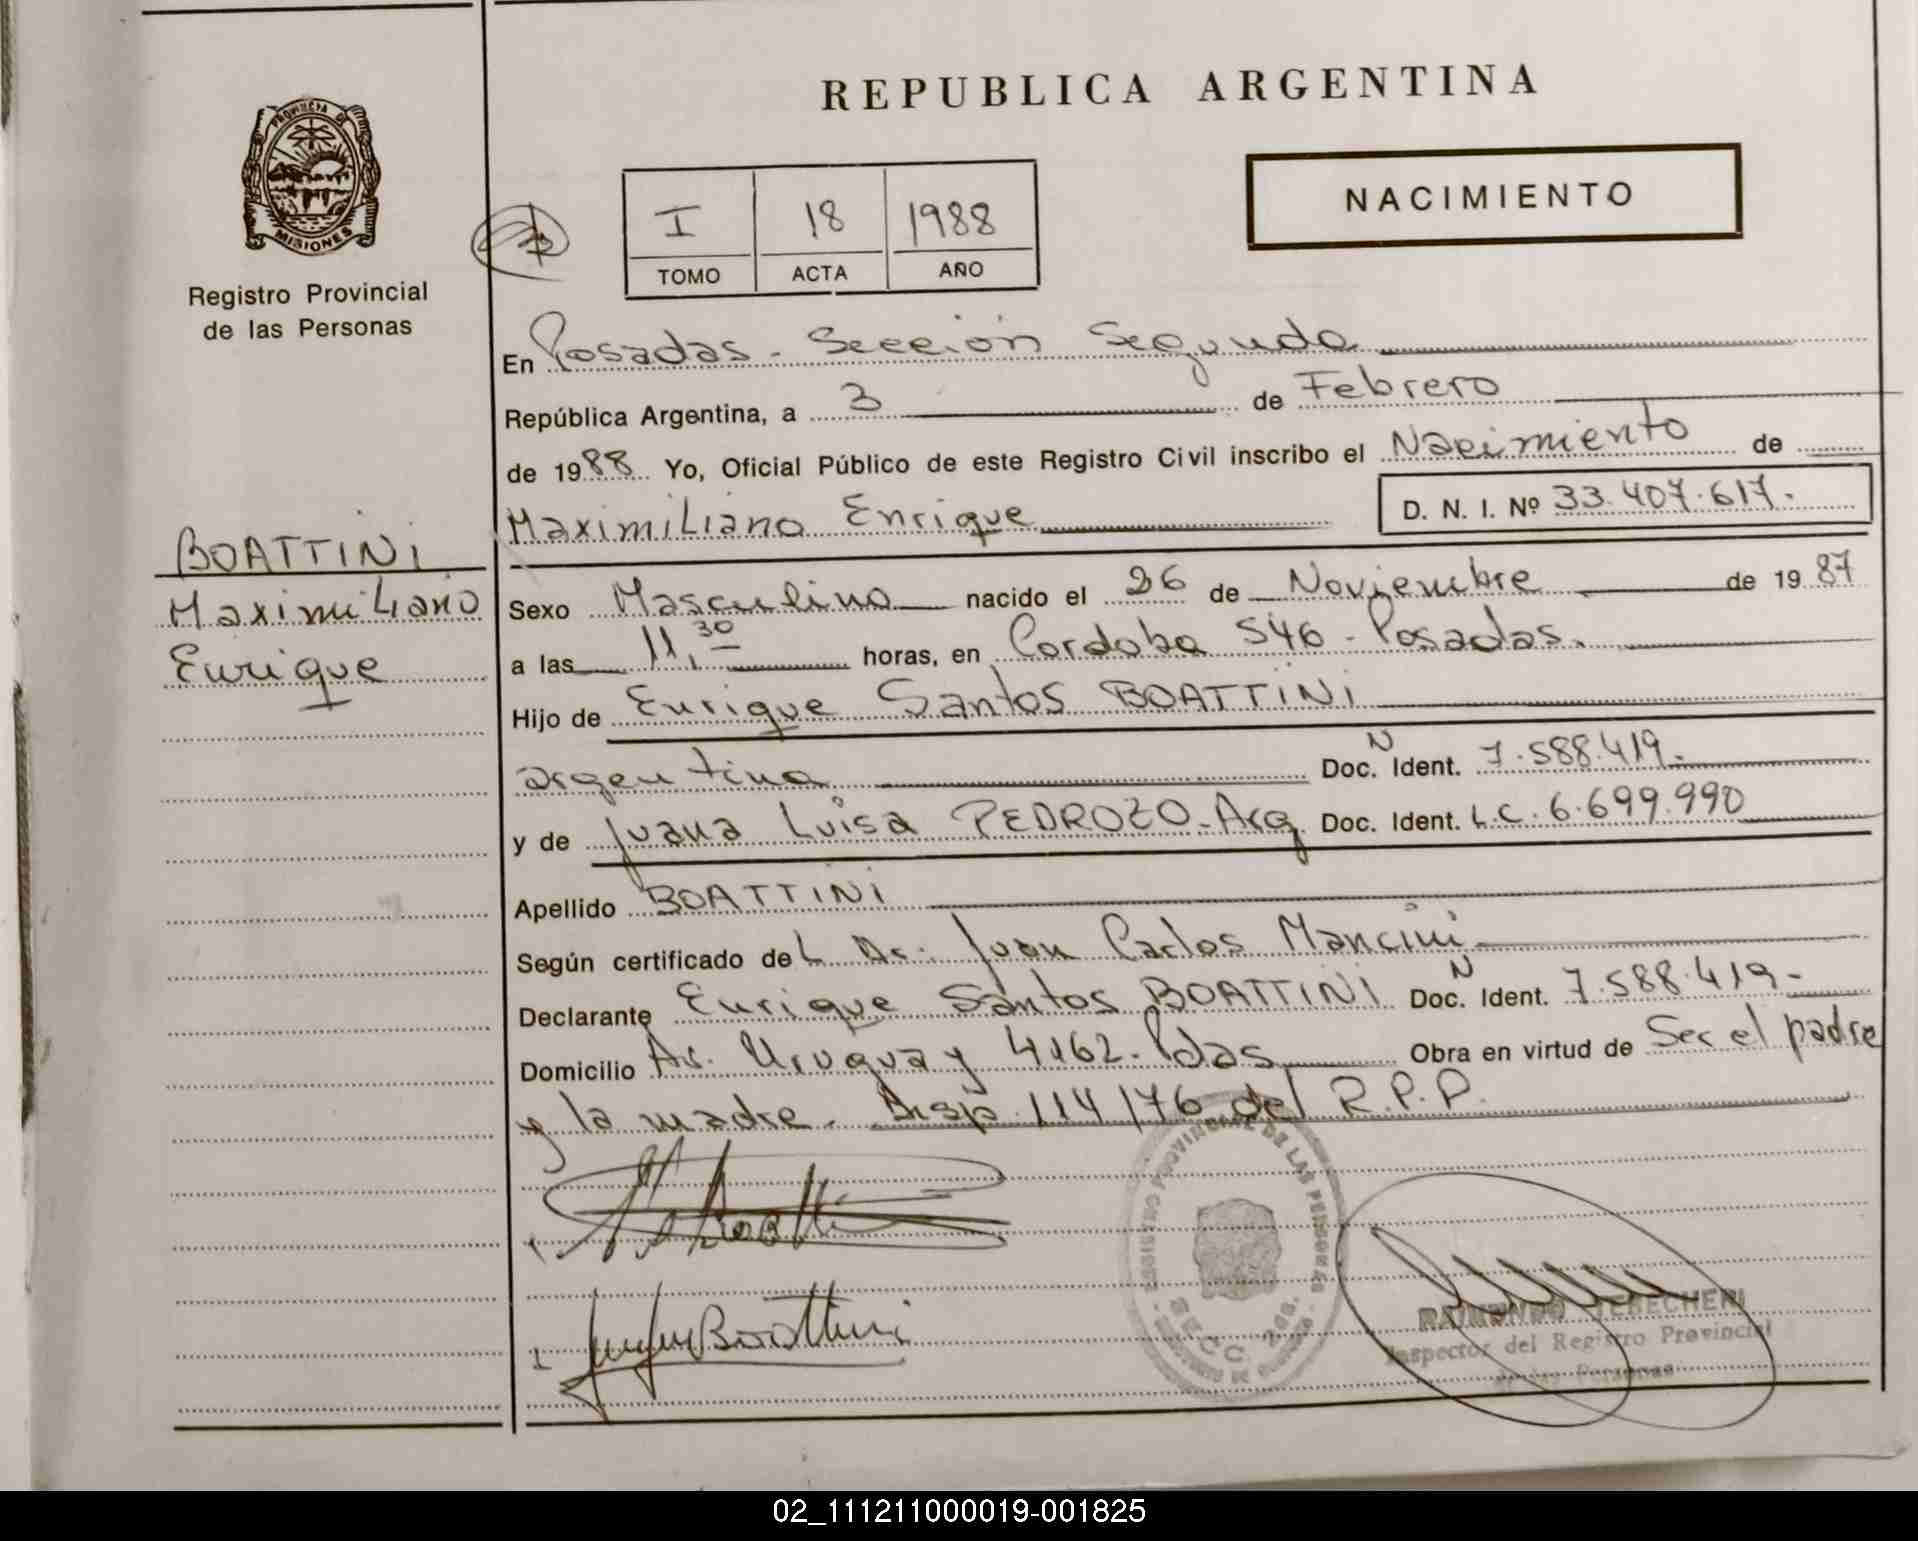 REPUBLICA ARGENTINA
PROVINCIA DE
MISIONES
Registro Provincial
de las Personas
I 18 1988
TOMO ACTA AÑO
NACIMIENTO
En Posadas - Sección Segunda
República Argentina, a 3 de Febrero
de 1988 Yo, Oficial Público de este Registro Civil inscribo el Nacimiento de
Maximiliano Enrique D. N. I. Nº 33.407.617.
BOATTINI
Maximiliano
Enrique
Sexo Masculino nacido el 26 de Noviembre de 1987
a las 11,30 horas, en Cordoba 546 - Posadas.
Hijo de Enrique Santos BOATTINI
argentino Doc. N Ident. 7.588.419.-
y de Juana Luisa PEDROZO - Arg. Doc. Ident. L.C. 6.699.990
Apellido BOATTINI
Según certificado del Dr. Juan Carlos Mancini
Declarante Enrique Santos BOATTINI Doc. N Ident. 7.588.419-
Domicilio Av. Uruguay 4162 - Pdas Obra en virtud de Ser el padre
y la madre. Disp. 114/76 del R.P.P.
Boattini
RAIMUNDO TEBECHERI
Inspector del Registro Provincial
de las Personas
02_111211000019-001825